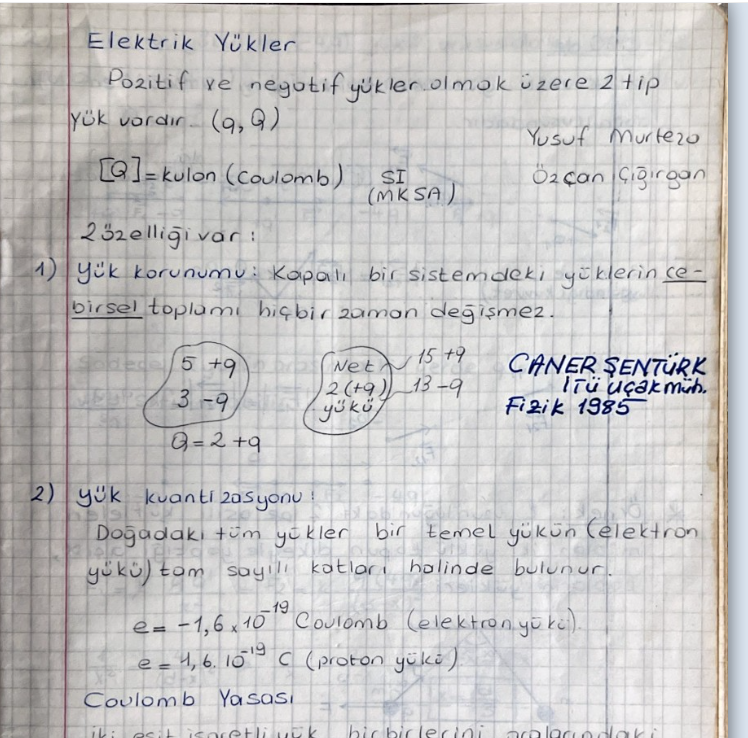 Elektrik Yükler
Pozitif ve negatif yükler olmak üzere 2 tip
yük vardır. (q, Q)
Yusuf Murteza
[Q] = kulon (coulomb) SI
(MKSA)
Özcan Çığırgan
2 özelliği var:
1) Yük korunumu: Kapalı bir sistemdeki yüklerin ce-
birsel toplamı hiçbir zaman değişmez.
5 +q
3 -q
Q = 2 +q
Net
2 (+q)
yükü
15 +q
13 -q
CANER ŞENTÜRK
İTÜ uçak müh.
Fizik 1985
2) Yük kuantizasyonu:
Doğadaki tüm yükler bir temel yükün (elektron
yükü) tam sayılı katları halinde bulunur.
e = -1,6 x 10⁻¹⁹ Coulomb (elektron yükü).
e = 1,6.10⁻¹⁹ C (proton yükü)
Coulomb Yasası
iki eşit işaretli yük birbirlerini aralarındaki